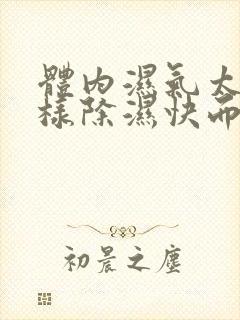 體內濕氣太
樣除濕快而
初晨之塵